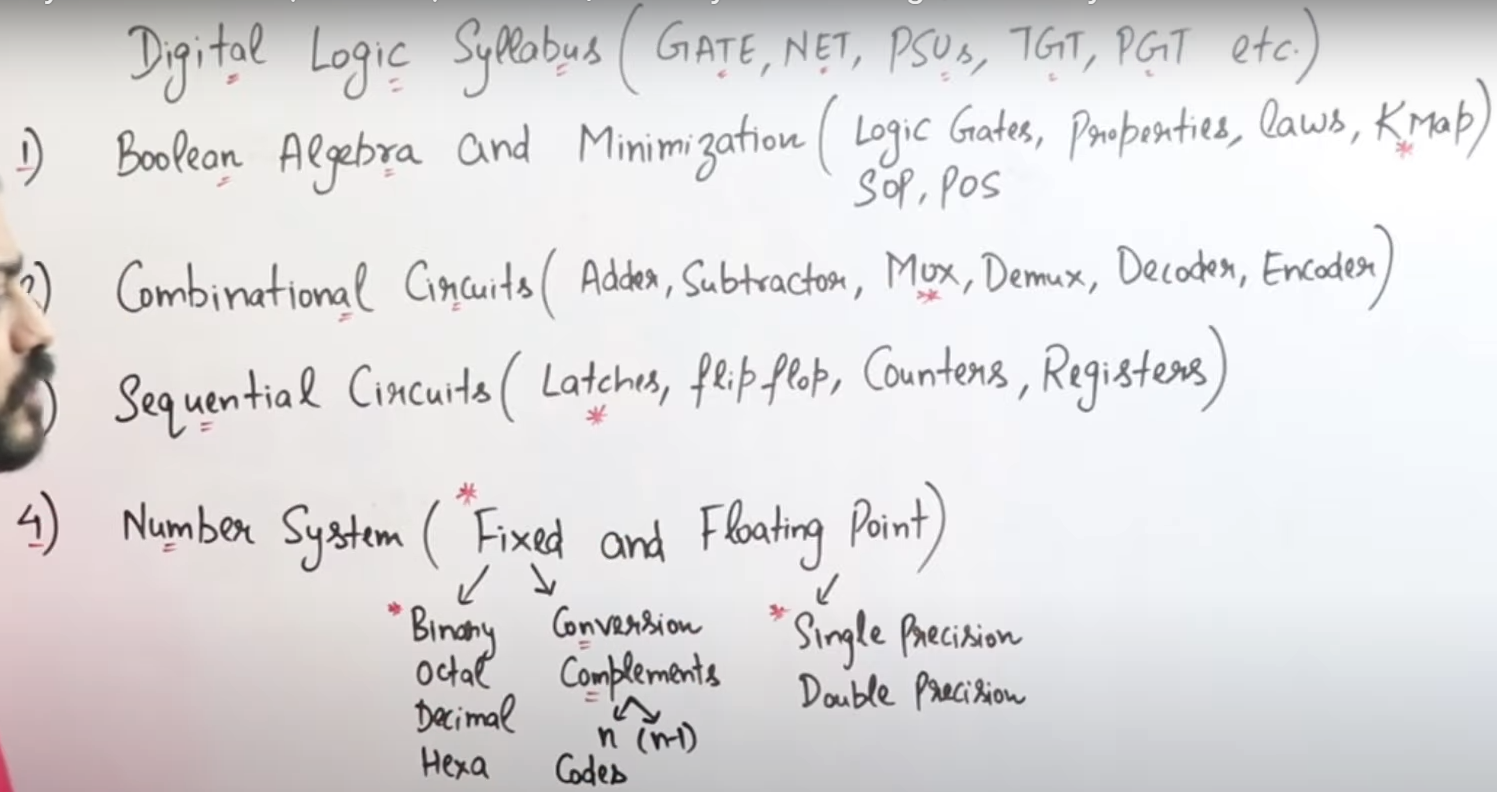 Digital Logic Syllabus (GATE, NET, PSUs, TGT, PGT etc.)
1) Boolean Algebra and Minimization (Logic Gates, Properties, laws, K Map)
SOP, POS
2) Combinational Circuits (Adder, Subtractor, Mux, Demux, Decoder, Encoder)
) Sequential Circuits (Latches, flip flop, Counters, Registers)
4) Number System (*Fixed and Floating Point)
*Binary Conversion *Single Precision
Octal Complements Double Precision
Decimal n (n-1)
Hexa Codes